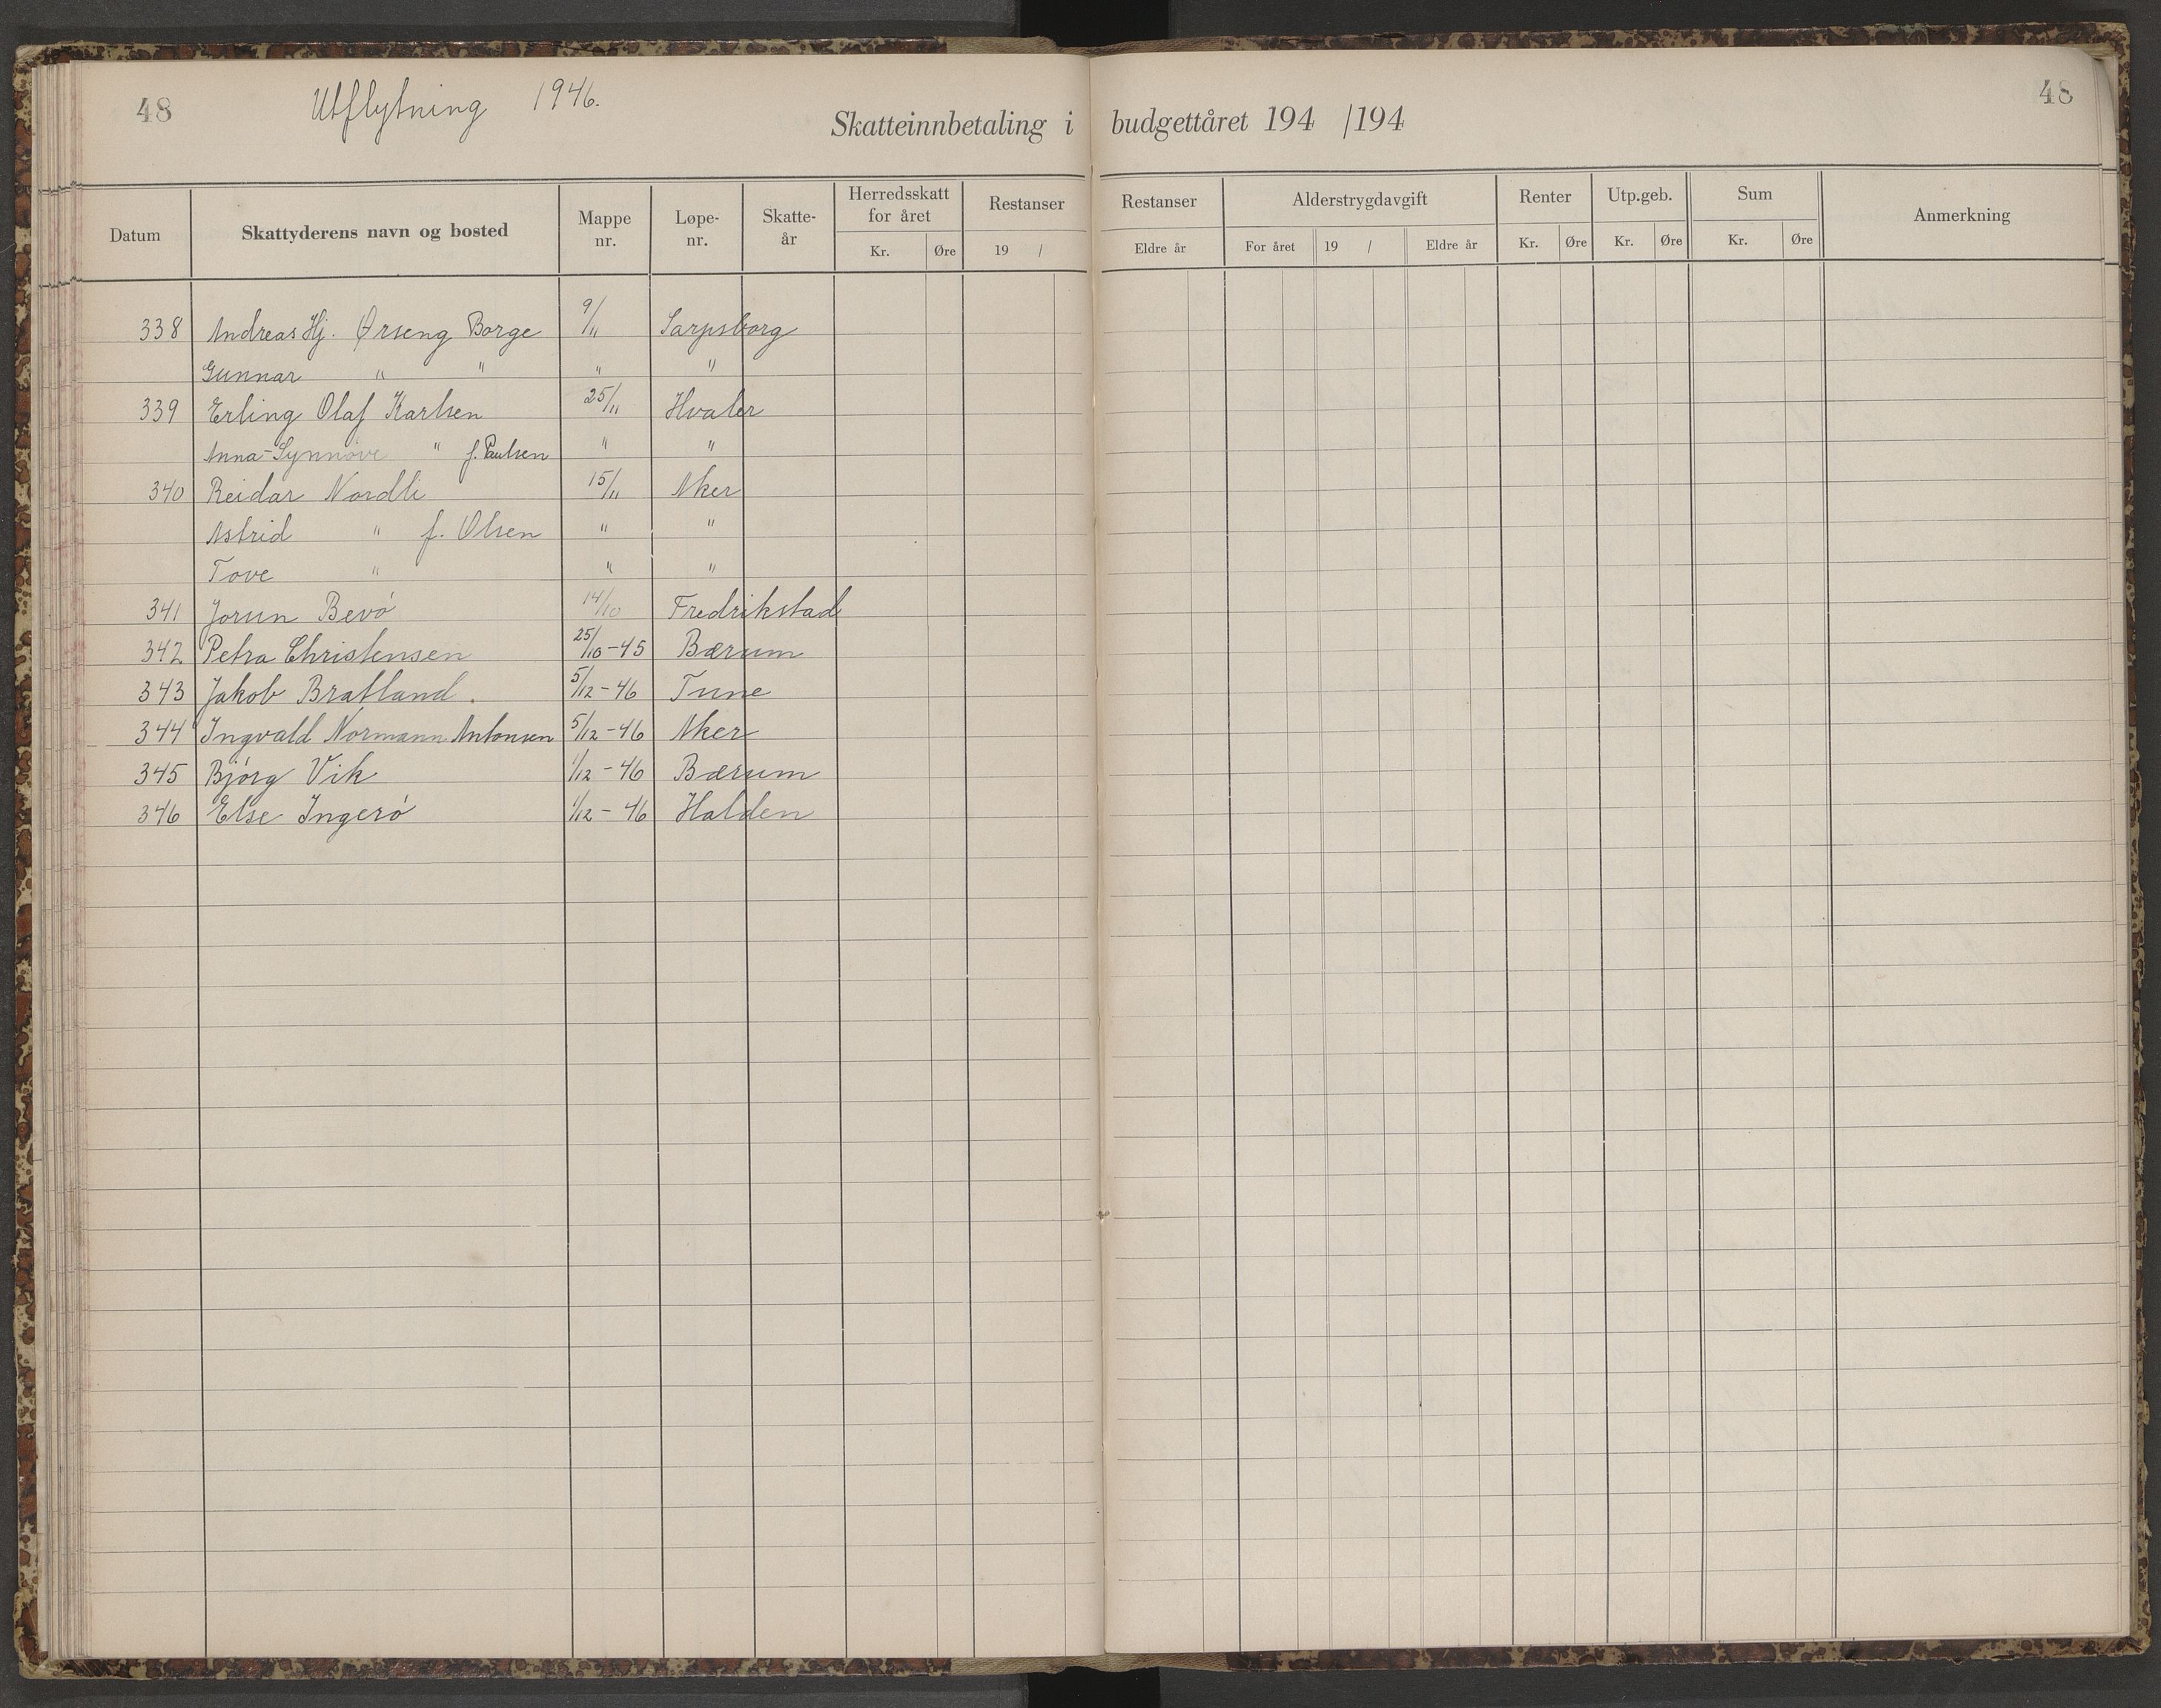 48
Utflytning 1946.
48
Skatteinnbetaling i budgettåret 194 /194
Datum
Skattyderens navn og bosted
Mappe nr.
Løpe-nr.
Skatte-år
Herredsskatt for året
Kr. Øre
Restanser
19 /
Restanser
Eldre år
Alderstrygdavgift
For året 19 / Eldre år
Renter
Kr. Øre
Utp.geb.
Kr. Øre
Sum
Kr. Øre
Anmerkning
338 Andreas Hj. Ørseng Borge 9/11 Sarpsborg
Gunnar " " " "
339 Erling Olaf Karlsen 25/11 Hvaler
Anna-Synnøve " f. Paulsen " "
340 Reidar Nordli 15/11 Aker
Astrid " f. Olsen " "
Tove " " "
341 Jorun Bevø 14/10 Fredrikstad
342 Petra Christensen 25/10-45 Bærum
343 Jakob Bratland. 5/12-46 Tune
344 Ingvald Normann Antonsen 5/12-46 Aker
345 Bjørg Vik 1/12-46 Bærum
346 Else Ingerø 1/12-46 Halden